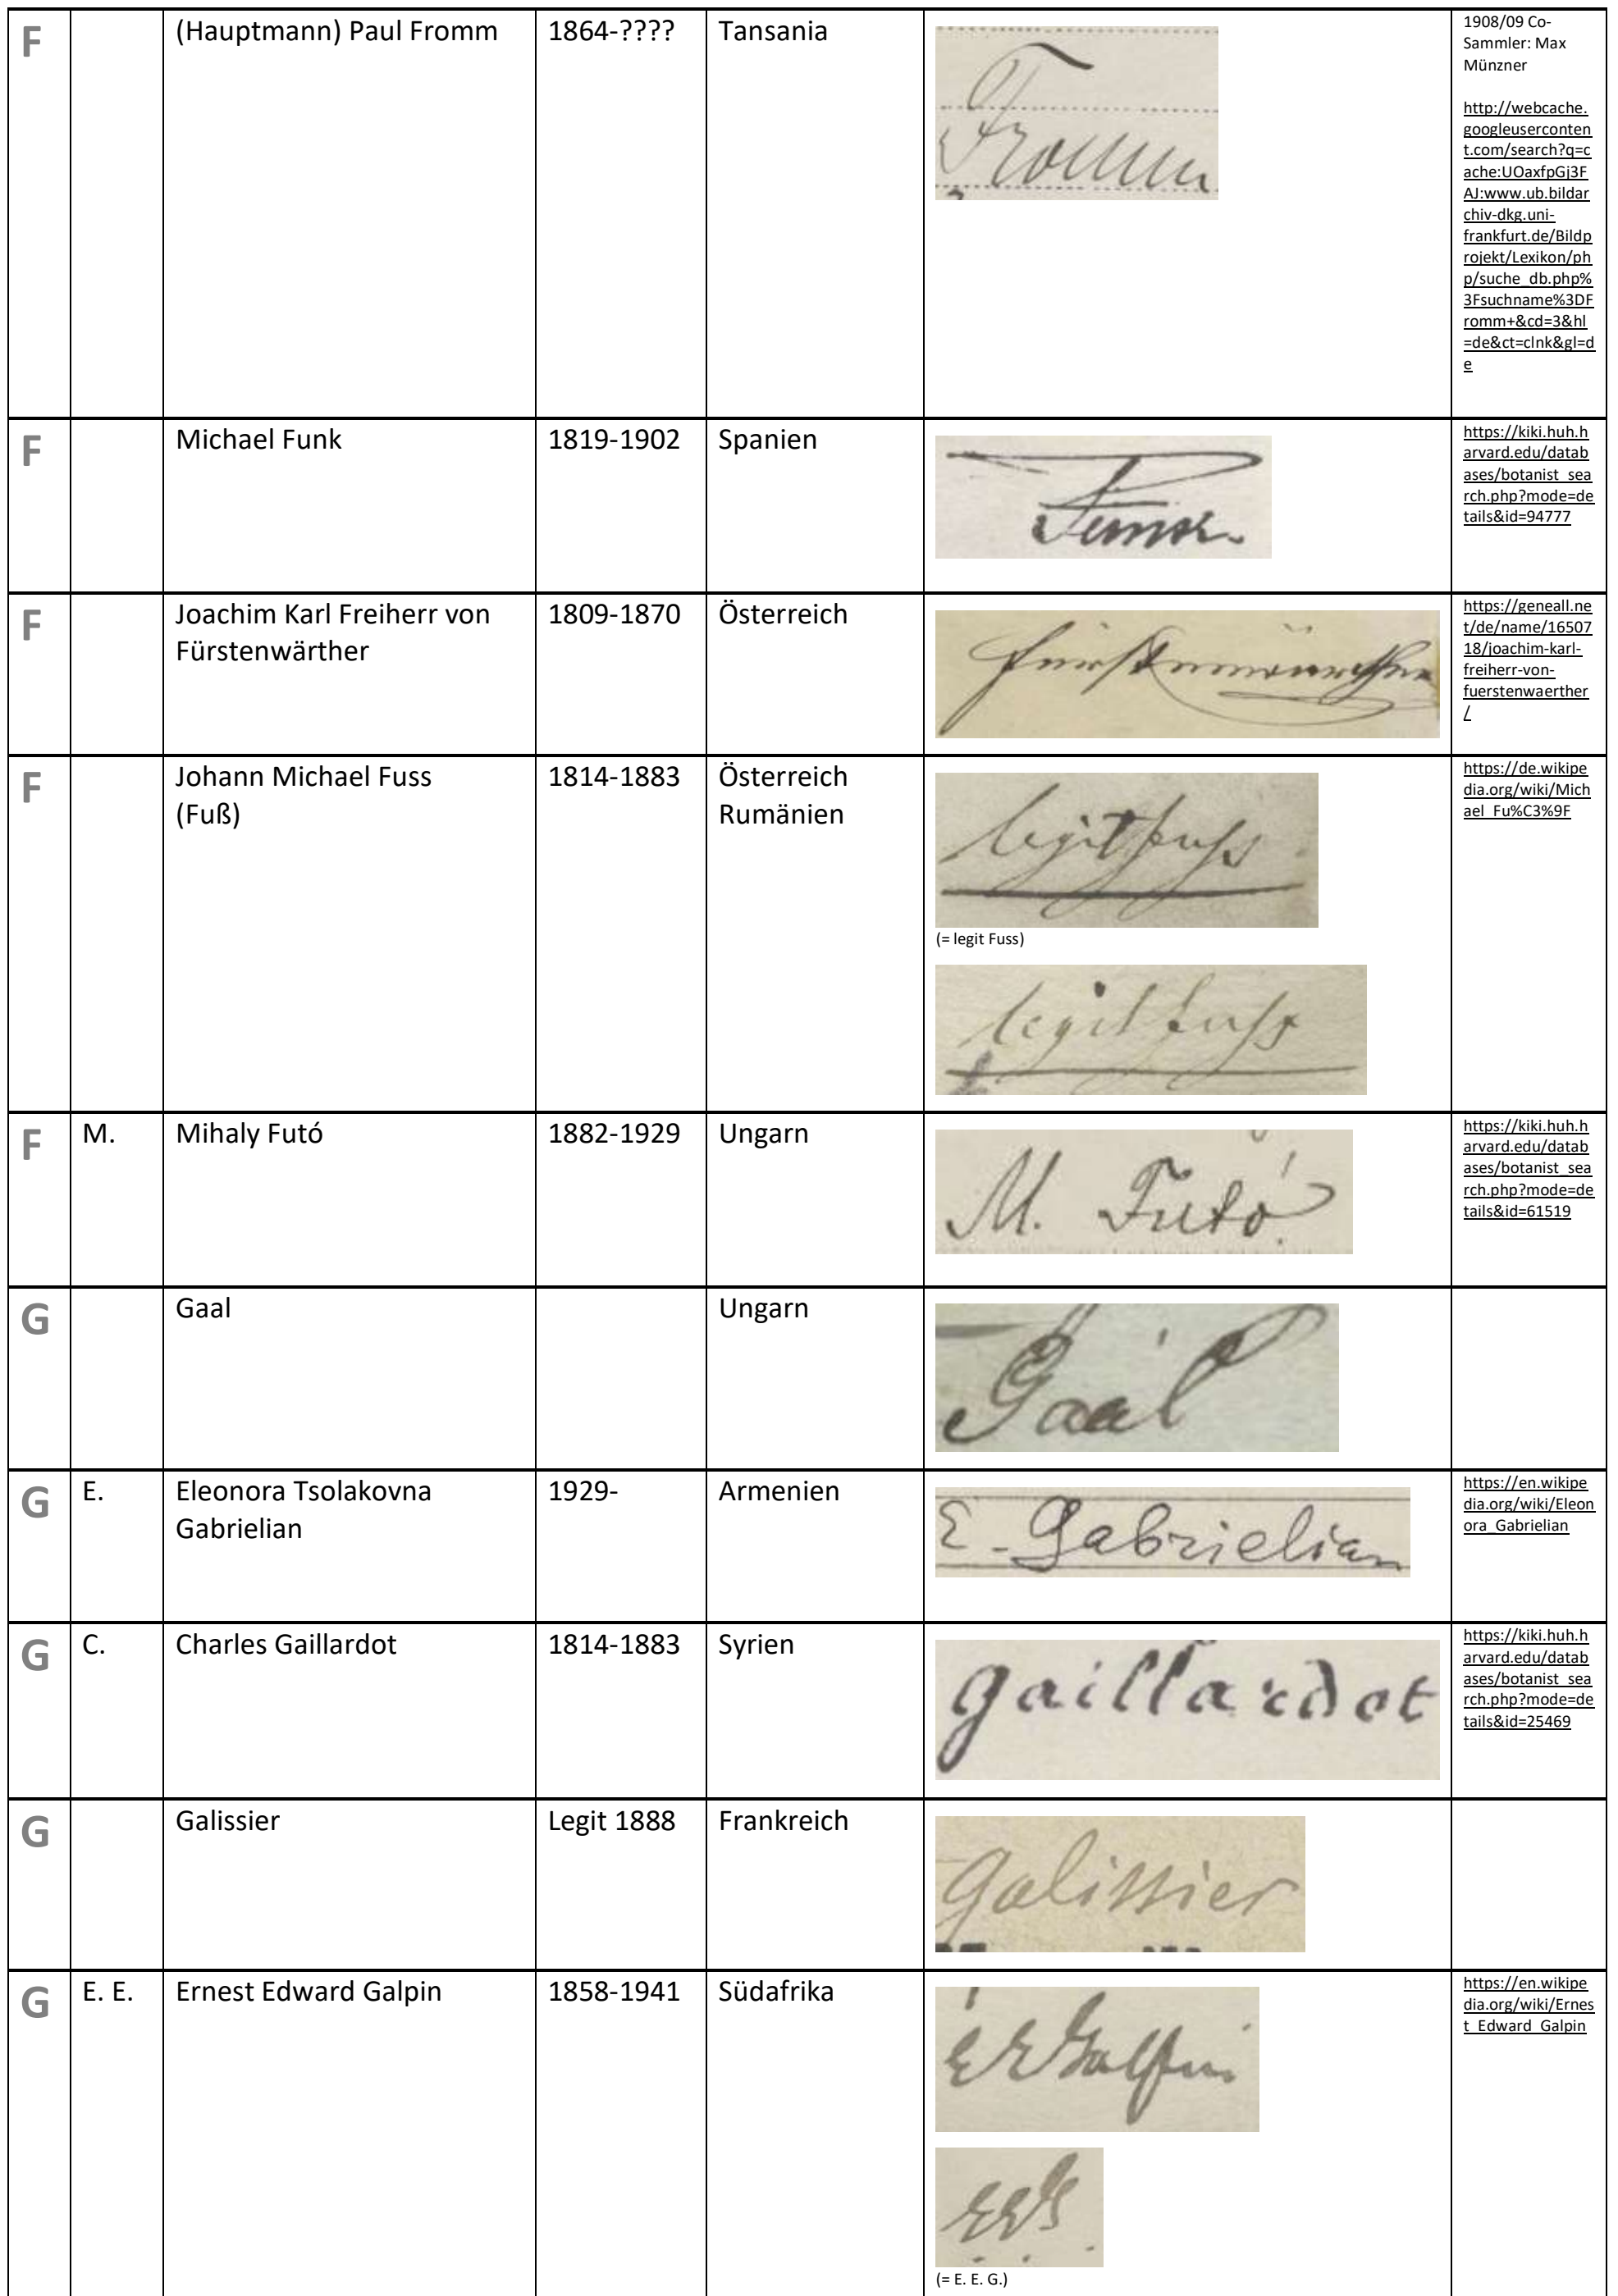 F
(Hauptmann) Paul Fromm
1864-????
Tansania
Fromm
1908/09 Co-
Sammler: Max
Münzner
http://webcache.
googleuserconten
t.com/search?q=c
ache:UOaxfpGj3F
AJ:www.ub.bildar
chiv-dkg.uni-
frankfurt.de/Bildp
rojekt/Lexikon/ph
p/suche_db.php%
3Fsuchname%3DF
romm+&cd=3&hl
=de&ct=clnk&gl=d
e
F
Michael Funk
1819-1902
Spanien
Funk
https://kiki.huh.h
arvard.edu/datab
ases/botanist_sea
rch.php?mode=de
tails&id=94777
F
Joachim Karl Freiherr von
Fürstenwärther
1809-1870
Österreich
Fürstenwärther
https://geneall.ne
t/de/name/16507
18/joachim-karl-
freiherr-von-
fuerstenwaerther
/
F
Johann Michael Fuss
(Fuß)
1814-1883
Österreich
Rumänien
legit Fuss
(= legit Fuss)
legit Fuss
https://de.wikipe
dia.org/wiki/Mich
ael_Fu%C3%9F
F
M.
Mihaly Futó
1882-1929
Ungarn
M. Futó
https://kiki.huh.h
arvard.edu/datab
ases/botanist_sea
rch.php?mode=de
tails&id=61519
G
Gaal
Ungarn
Gaál
G
E.
Eleonora Tsolakovna
Gabrielian
1929-
Armenien
E. Gabrielian
https://en.wikipe
dia.org/wiki/Eleon
ora_Gabrielian
G
C.
Charles Gaillardot
1814-1883
Syrien
gaillardot
https://kiki.huh.h
arvard.edu/datab
ases/botanist_sea
rch.php?mode=de
tails&id=25469
G
Galissier
Legit 1888
Frankreich
Galissier
G
E. E.
Ernest Edward Galpin
1858-1941
Südafrika
E E Galpin
E E G
(= E. E. G.)
https://en.wikipe
dia.org/wiki/Ernes
t_Edward_Galpin